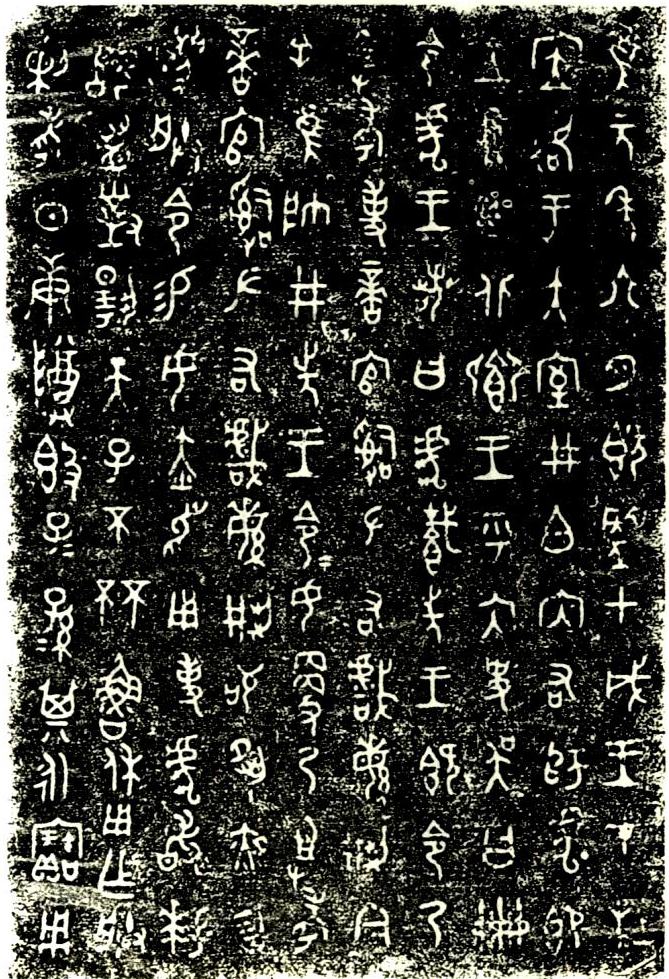 隹元年六月既望甲戌王才杜
𡨦格于大室井白內右師虎即
立中廷北鄉王乎內史吳曰冊
令虎王若曰虎𩁹先王既令乃
祖考事啻官𤔲左右戲繁荊今
余隹帥井先王令=女更乃祖考
啻官𤔲左右戲繁荊敬夙夜勿
灋朕令易女赤舄用事虎敢拜
𩒨首對揚天子不杯魯休用乍朕
剌考日庚尊簋子=孫=其永寶用